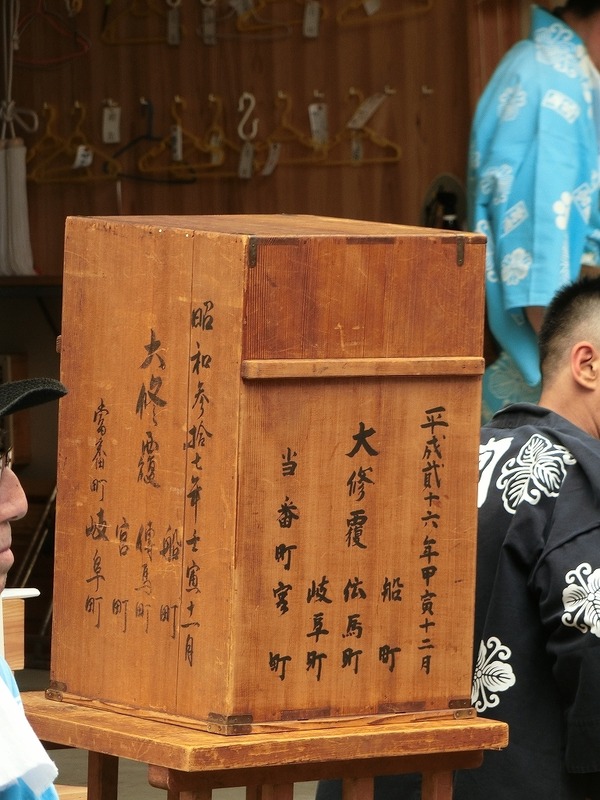 平成貳十六年甲寅十二月
船町
大修覆 伝馬町
岐阜町
当番町 宮町
昭和参拾七年壬寅十一月
船町
大修覆 傳馬町
宮町
當番町 岐阜町